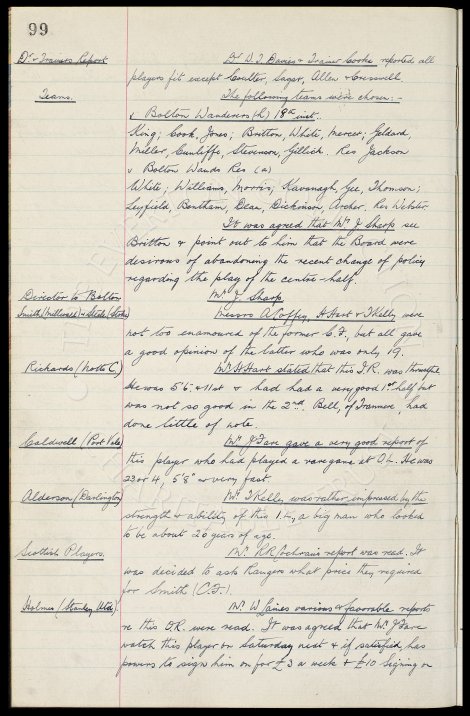 99
Dr & Trainers Report Dr D. J. Davies & Trainer Cooke reported all
players fit except Coulter, Sagar, Allen & Cresswell
Teams. The following teams were chosen:-
v Bolton Wanderers (h) 18th inst.
King; Cook, Jones; Britton, White, Mercer; Geldard,
Miller, Cunliffe, Stevenson, Gillick. Res Jackson
v Bolton Wands Res (a)
White; Williams, Morris; Kavanagh, Gee, Thomson;
Leyfield, Bentham, Dean, Dickinson, Archer. Res Webster.
It was agreed that Mr J. Sharp see
Britton & point out to him that the Board were
desirous of abandoning the recent change of policy
regarding the play of the centre-half.
Director to Bolton Mr J. Sharp
Smith (Millwall) & Steele (Stoke) Messrs A Coffey, H Hart & T Kelly were
not too enamoured of the former C.F., but all gave
a good opinion of the latter who was only 19.
Richards (Notts C.) Mr H Hart stated that this I.R. was thoughtful
He was 5'6 & 11st & had had a very good 1st half but
was not so good in the 2nd. Bell, of Tranmere, had
done little of note.
Caldwell (Port Vale) Mr J Fare gave a very good report of
this player who had played a rare game at O.L. He was
23 or 4, 5'8" & very fast.
Alderson (Darlington) Mr T Kelly was rather impressed by the
strength & ability of this I.L., a big man who looked
to be about 20 years of age.
Scottish Players. Mr R R Cochran's report was read. It
was decided to ask Rangers what price they required
for Smith (C.F.).
Holmes (Stanley Utd). Mr W Gaines various & favorable reports
re this O.R. were read. It was agreed that Mr J Fare
watch this player on Saturday next & if satisfied, has
powers to sign him on for £3 a week & £10 Signing on